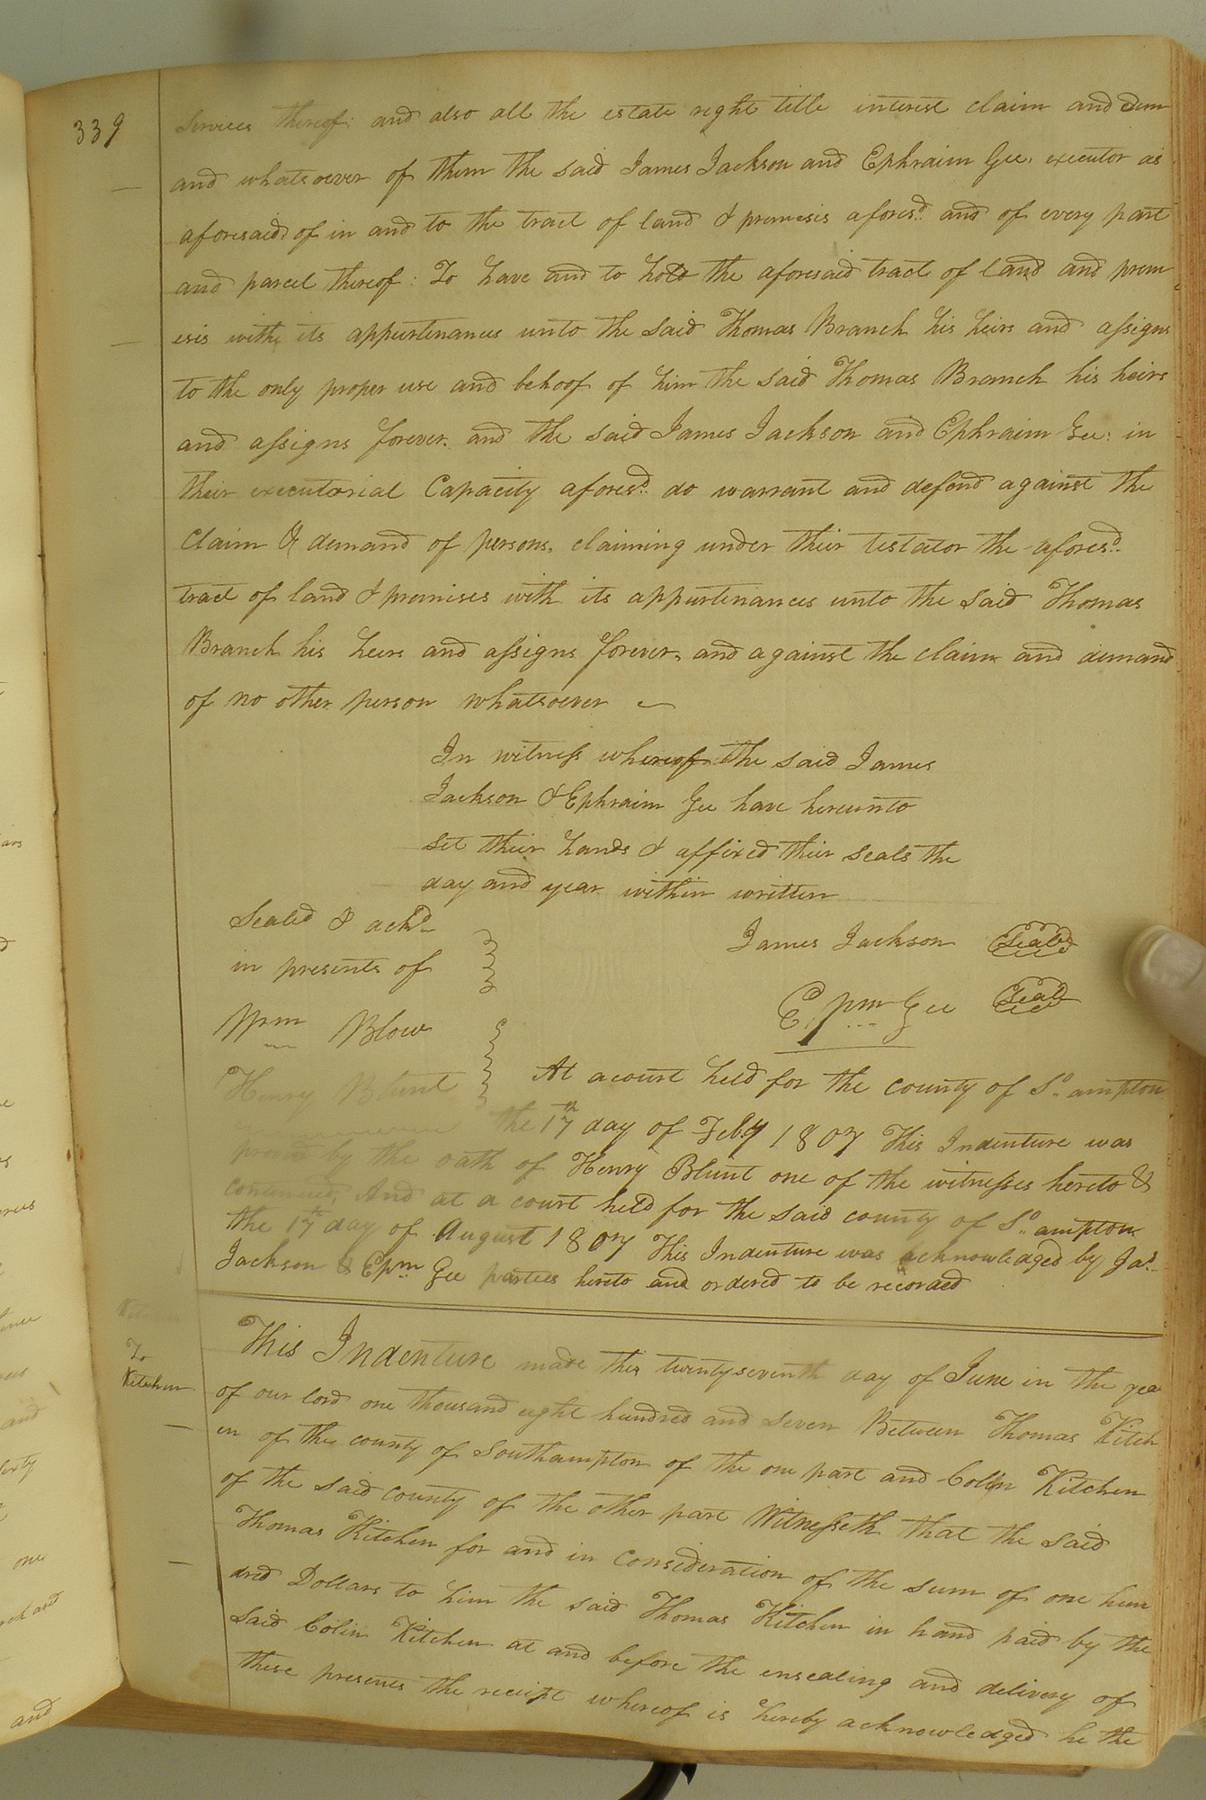 339
Services thereof: and also all the estate right title interest claim and dem
and whatsoever of them the said James Jackson and Ephraim Gee, executor as
aforesaid, of in and to the tract of land & premisis aforesd. and of every part
and parcel thereof: To have and to hold the aforesaid tract of land and prem-
esis with its appurtenances unto the said Thomas Branch his heirs and assigns
to the only proper use and behoof of him the said Thomas Branch his heirs
and assigns forever. and the said James Jackson and Ephraim Gee: in
their executorial Capacity aforesd. do warrant and defend against the
Claim & demand of persons, claiming under their testator the aforesd.
tract of land & premises with its appurtenances unto the said Thomas
Branch his heirs and assigns forever, and against the claim and demand
of no other person whatsoever
In witness whereof the said James
Jackson & Ephraim Gee have hereunto
set their hands & affixed their seals the
day and year within written
Sealed & ackd
in presents of
Wm Blow
Henry Blunt
James Jackson Seal
Epm Gee Seal
At a court held for the county of So. ampton
the 17th day of Feby 1807 This Indenture was
proved by the oath of Henry Blunt one of the witnesses hereto &
continued, And at a court held for the said county of So. ampton
the 17th day of August 1807 This Indenture was acknowledged by Jas.
Jackson & Epm. Gee parties hereto and ordered to be recorded
Kitchen
To
Kitchen
This Indenture made this twenty seventh day of June in the yea
of our lord one thousand eight hundred and seven Between Thomas Kitch
en of the county of Southampton of the one part and Colin Kitchen
of the said county of the other part Witnesseth that the said
Thomas Kitchen for and in Consideration of the sum of one hun
dred Dollars to him the said Thomas Kitchen in hand paid by the
said Colin Kitchen at and before the ensealing and delivery of
these presents the receipt whereof is hereby acknowledged he the